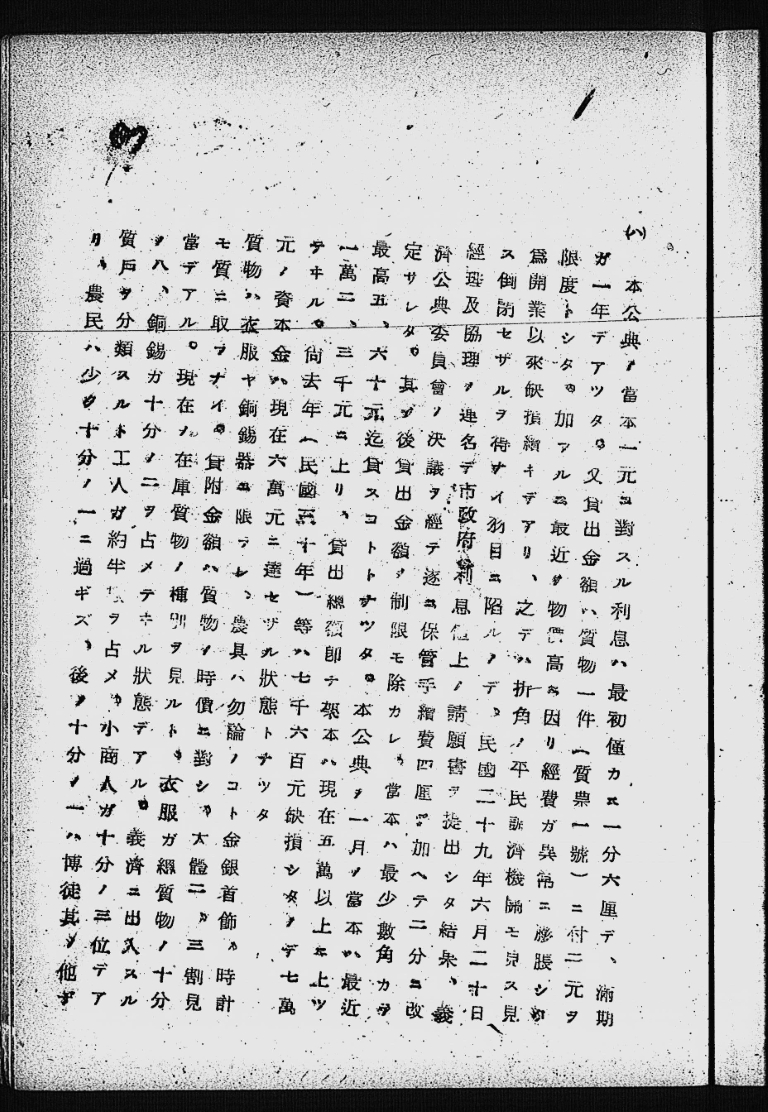 (八) 本公典ノ當本一元ニ對スル利息ハ最初僅カニ一分六厘デ、滿期
ガ一年デアツタ。又貸出金額ハ質物一件(質票一號)ニ付二元ヲ
限度トシタ。加フルニ最近ノ物價高ニ因リ經費ガ異常ニ膨脹シ
爲開業以來缺損續キデアリ、之デハ折角ノ平民救濟機關モ見ス見
ス倒閉セザルヲ得ナイ羽目ニ陷ルノデ、民國二十九年六月二十日
經理及協理ノ連名デ市政府 利息値上ノ請願書ヲ提出シタ結果、義
濟公典委員會ノ決議ヲ經テ遂ニ保管手續費四厘ヲ加ヘテ二分ニ改
定サレタ。其ノ後貸出金額ノ制限モ除カレ、當本ハ最少數角カラ
最高五、六十元迄貸スコトトナツタ。本公典ノ一月ノ當本ハ最近
一萬二、三千元ニ上リ、貸出總額卽チ架本ハ現在五萬以上ニ上ツ
テヰル。尙去年(民國三十年)等ハ七千六百元缺損シタノデ七萬
元ノ資本金ハ現在六萬元ニ達セザル狀態トナツタ
質物ハ衣服ヤ銅錫器ニ限ラレ、農具ハ勿論ノコト金銀首飾ヤ時計
モ質ニ取ラナイ。貸附金額ハ質物ノ時價ニ對シ、大體二、三割見
當デアル。現在ノ在庫質物ノ種別ヲ見ルト、衣服ガ總質物ノ十分
ノ八、銅錫ガ十分ノ二ヲ占メテヰル狀態デアル。義濟ニ出入スル
質戶ヲ分類スルト工人ガ約半 ヲ占メ、小商人ガ十分ノ三位デア
リ、農民ハ少ク十分ノ一ニ過ギズ、後ノ十分ノ一ハ博徒其ノ他デ